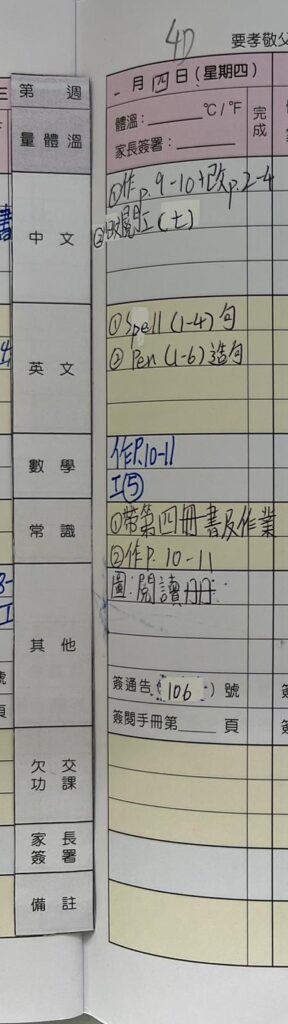 4D
要孝敬父
第 週
月四日(星期四)
量體溫
體溫:______ °C/°F
完成
家長簽署:______
中文
①作p.9-10+改p.2-4
②閱工(七)
英文
①Spell (1-4) 句
② Pen (1-6) 造句
數學
作P.10-11
工⑤
常識
①帶第四冊書及作業
②作P. 10-11
其他
圖:閱讀冊
簽通告(106)號
簽閱手冊第____頁
欠交功課
家長簽署
備註